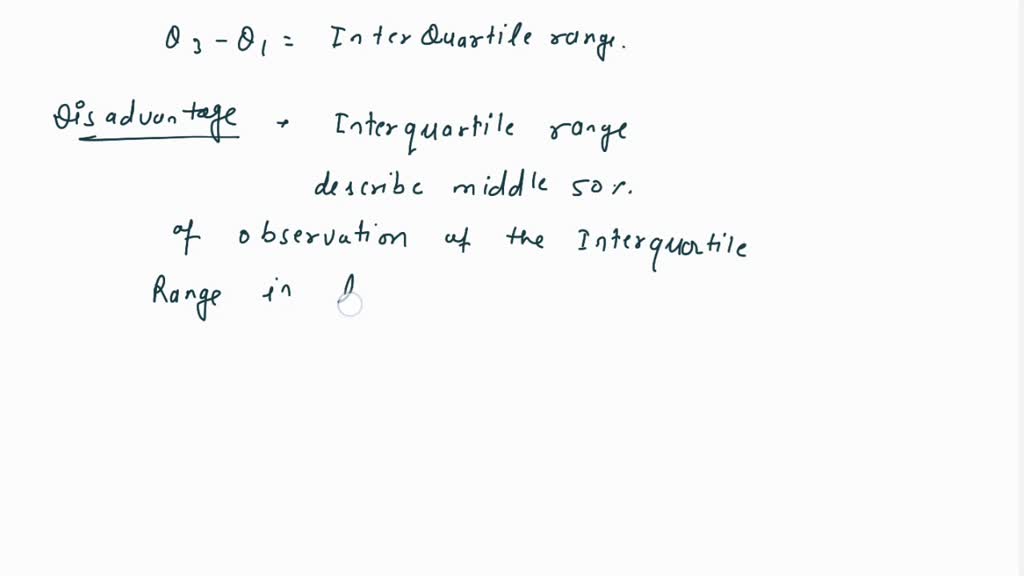 Q3 - Q1 = InterQuartile range.
Disadvantage → Interquartile range
describe middle 50%.
of observation of the Interquartile
Range in